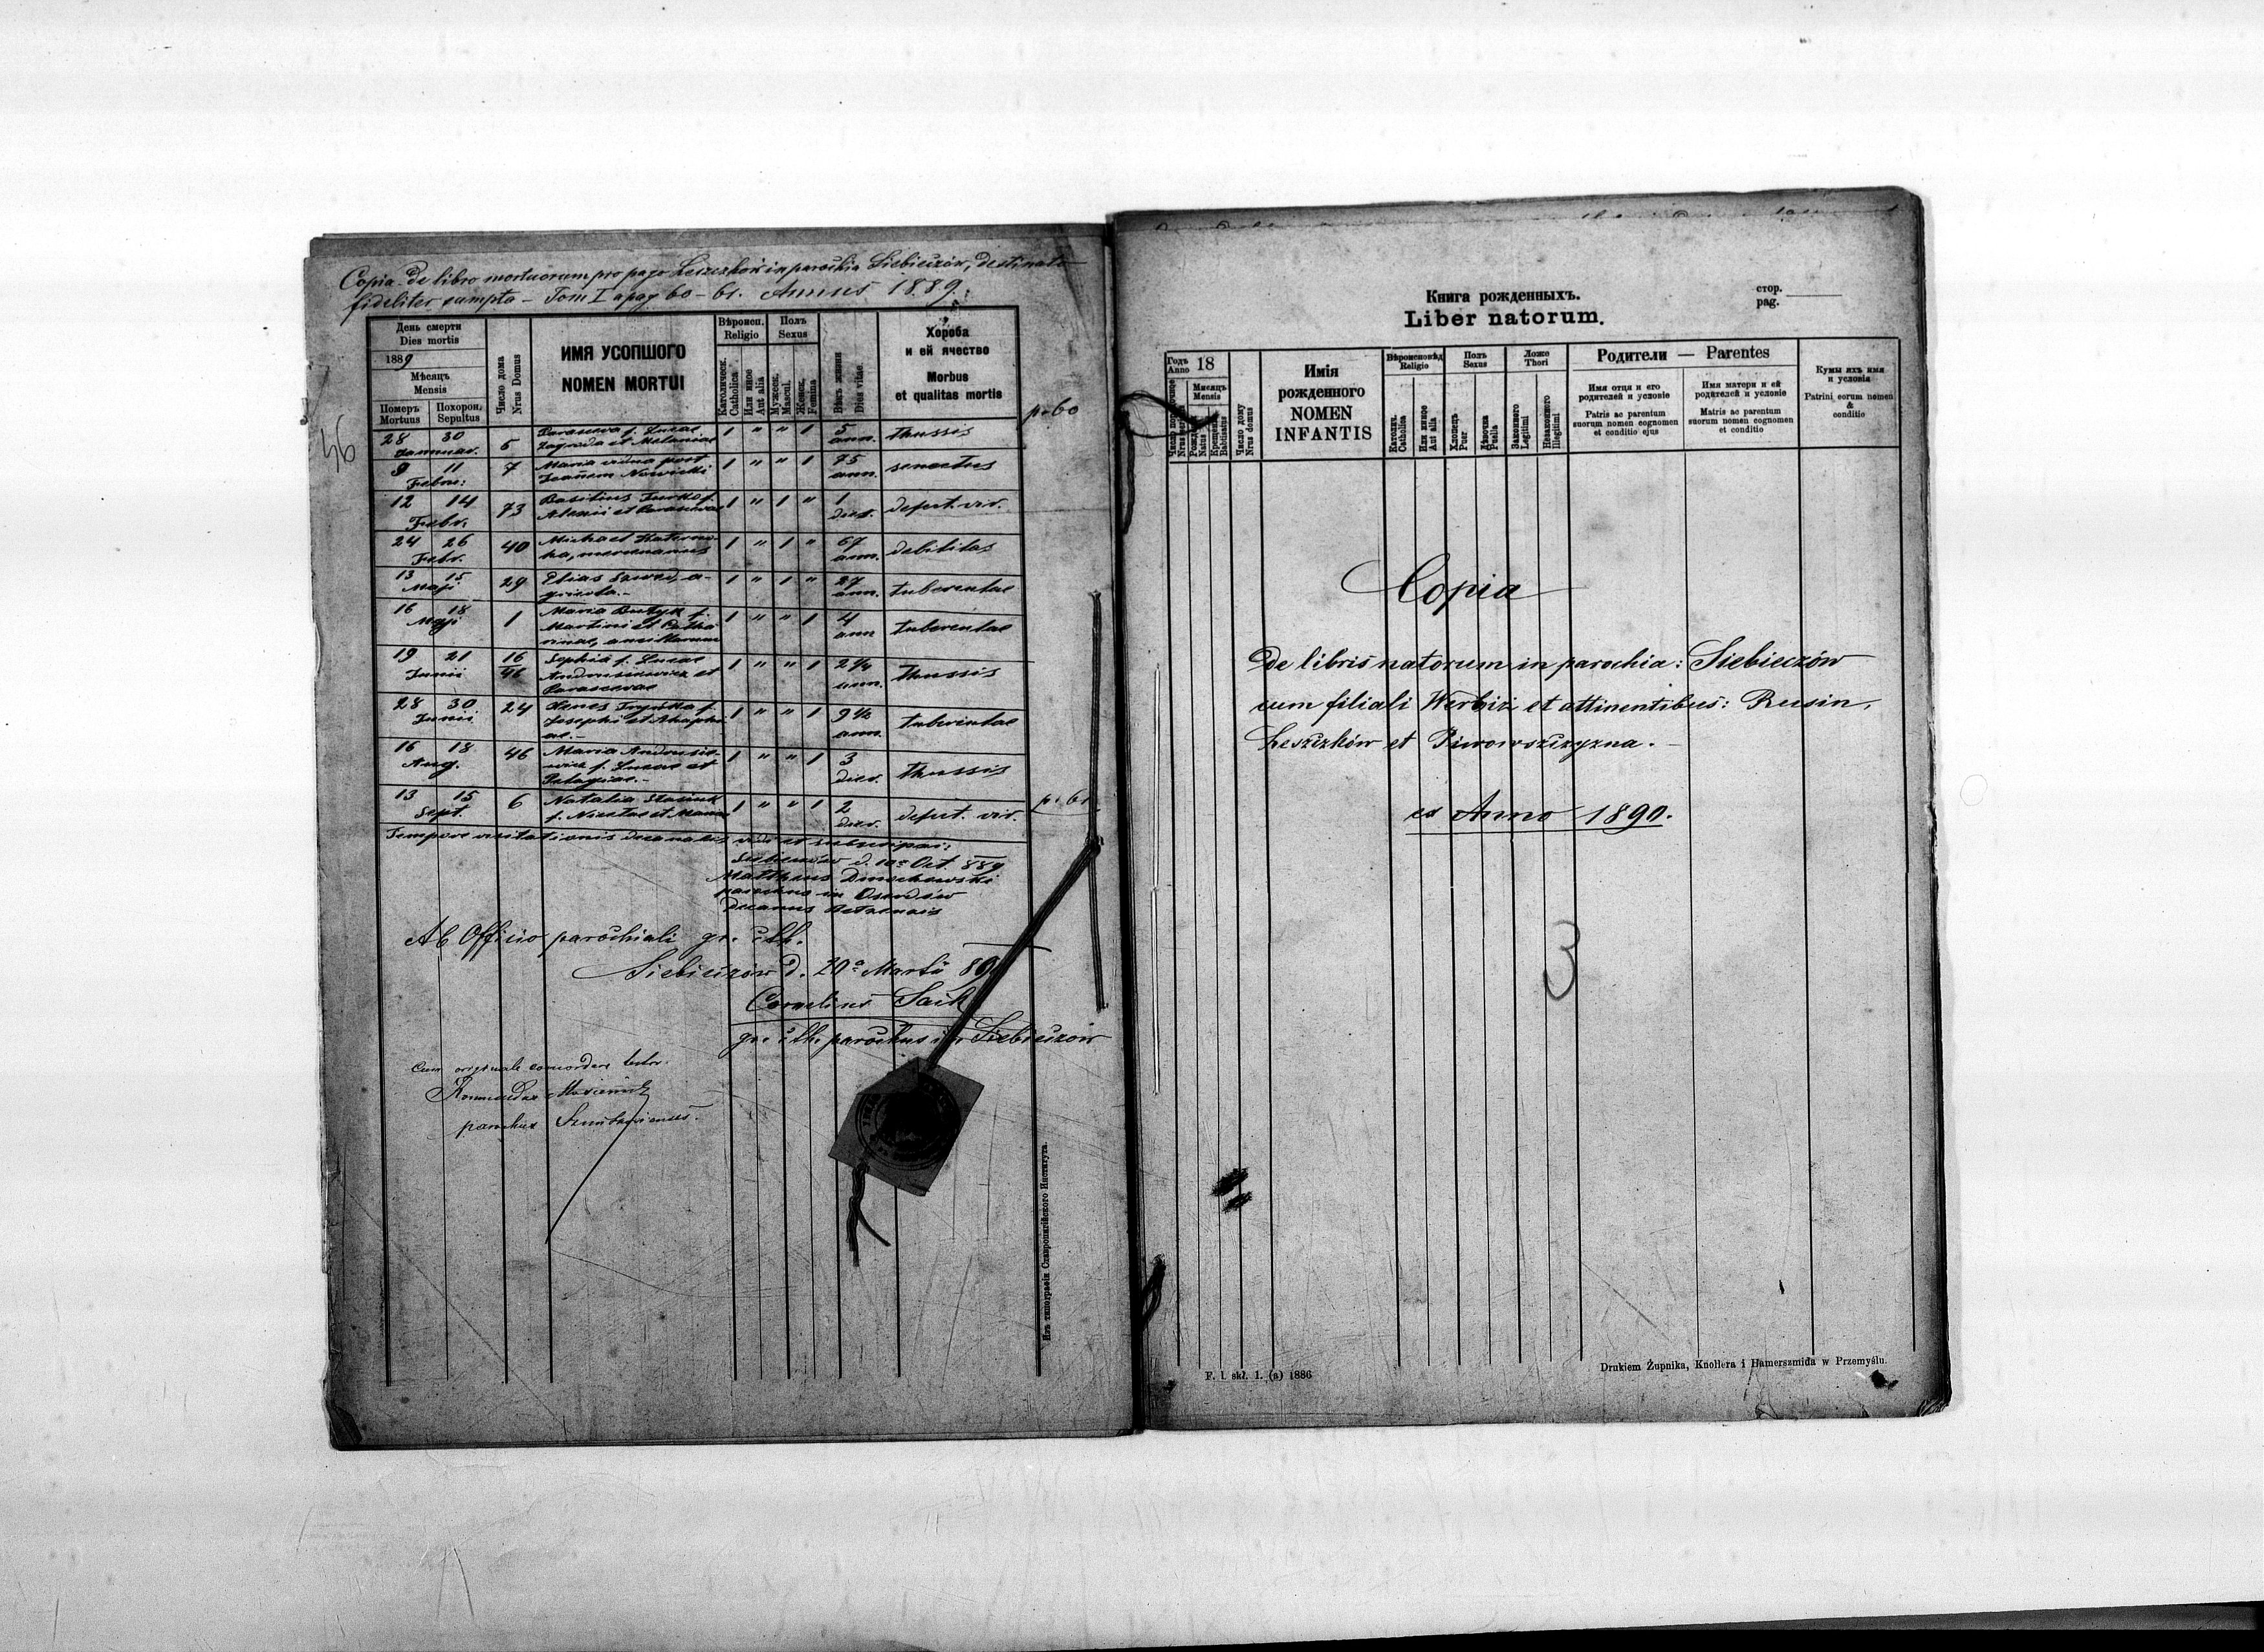 Copia de libro mortuorum pro pago Leszczków in parochia Siebieczów, destinato
fideliter sumpta – Tom I a pag 60–61. Annus 1889.
День смерти
Dies mortis
1889
Мѣсяць
Mensis
Померъ
Mortuus
Похорон.
Sepultus
Число дома
Nrus Domus
ИМЯ УСОПШОГО
NOMEN MORTUI
Вѣроисп.
Religio
Католическ.
Catholica
Или иное
Aut alia
Полъ
Sexus
Мужеск.
Mascul.
Женск.
Femina
Вѣкъ жизни
Dies vitae
Хороба
и ей ячество
Morbus
et qualitas mortis
p. 60
46
28 30 Januar. 6 Parasceva f. Lucae 1 " " 1 5 ann. thussis
Zagroda et Melaniae
9 11 Febru: 7 Maria vidua post 1 " " 1 75 ann. senectus
Joannem Nowicki
12 14 Febr. 73 Basilius Turko f. 1 " 1 " 1 dies. defect. vir.
Alexii et Parascevae
24 26 Febr. 40 Michael 1 " 1 " 67 ann. debilitas
mercenarius
13 15 Maji 29 Elias Sawed, a- 1 " 1 " 27 ann. tuberculae
gricola.–
16 18 Maji 1 Maria f. 1 " " 1 4 ann tuberculae
Martini et Catha
rinae,
19 21 Junii 16/46 Sophia f. Lucae 1 " " 1 2 1/4 ann. thussis
Andrusiewicz et
Parascevae
28 30 Junii 24 f. 1 " " 1 9 1/2 ann. tuberculae
Josephi et Ahaphi
ae.–
16 18 Aug. 46 Maria Andrusie- 1 " " 1 3 dies. thussis
wicz f. Lucae et
Pelagiae.–
13 15 Sept. 6 Natalia 1 " " 1 2 dies. defect. vir.
f. Nicetae et Maria
p. 61
Tempore visitationis decanalis vidi et subscripsi:
Siebieczów d. 10ª Oct. 889
Mattheus Dmochowski
parochus in Oserdów
decanus
Ab Officio parochiali gr. cth.
Siebieczów d. 20ª Martii 89
Cornelius Saik
gr. cth. parochus in Siebieczów
Cum originale concordare testor.
parochus
Изъ типографіи Ставропигійского Института.
Книга рожденныхъ.
Liber natorum.
стор.
pag.
Годъ
Anno 18
Число порядочное
Мѣсяць
Mensis
Natus
Крещен
Babtisatus
Число дому
Nrus domus
Имія
рожденного
NOMEN
INFANTIS
Вѣроисповѣд
Religio
Католик.
Catholica
Или инное
Aut alia
Полъ
Sexus
Хлопецъ
Puer
Дѣвочка
Puella
Ложе
Thori
Законного
Legitimi
Незаконного
Illegitimi
Родители — Parentes
Имя отца и его
родителей и условіе
Patris ac parentum
suorum nomen cognomen
et conditio ejus
Имя матери и ей
родителей и условіе
Matris ac parentum
suorum nomen cognomen
et conditio
Кумы ихъ имя
и условія
Patrini eorum nomen
&
conditio
Copia
de libris natorum in parochia: Siebieczów
cum filiali Werbiz et attinentibus: Rusin,
Leszczków et Piwowszczyzna.–
ex Anno 1890.
3
F. l. skł. 1. (a) 1886
Drukiem Żupnika, Knollera i Hamerszmida w Przemyślu.